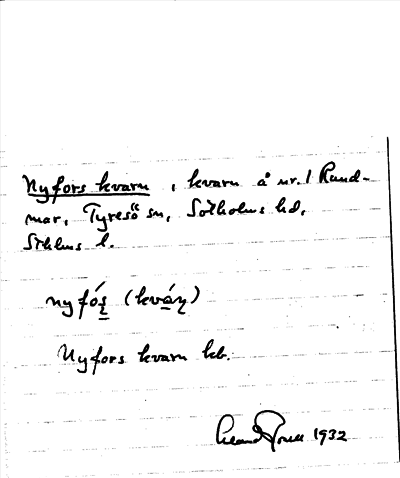 Nyfors kvarn, kvarn å nr. 1 Rund-
mar, Tyresö sn, Sotholms hd,
Sthlms l.
nyfóʂ (kváɳ)
Nyfors kvarn kb.
1932